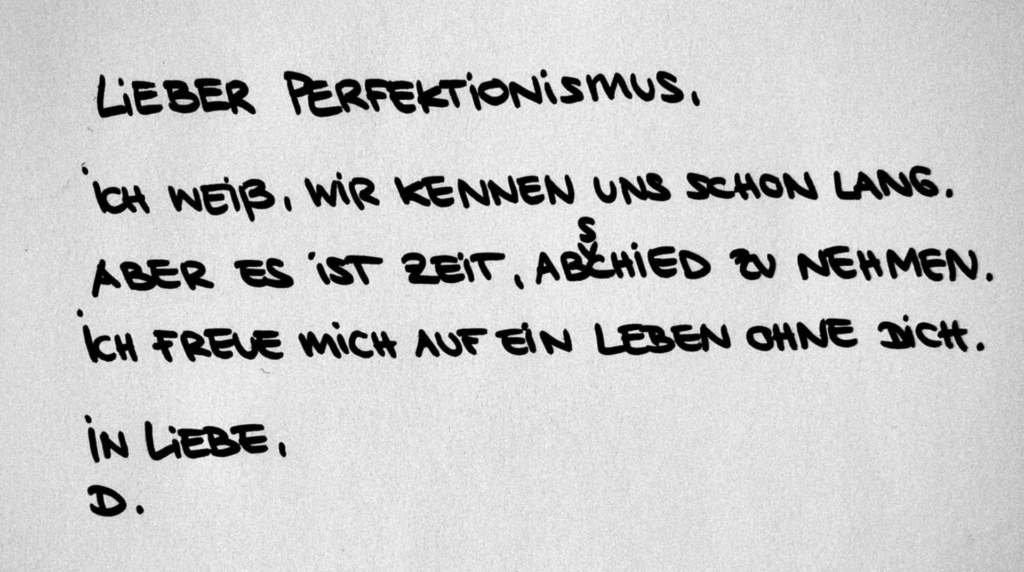 LIEBER PERFEKTIONISMUS,
ICH WEIß, WIR KENNEN UNS SCHON LANG.
ABER ES IST ZEIT, ABSCHIED ZU NEHMEN.
ICH FREUE MICH AUF EIN LEBEN OHNE DICH.
IN LIEBE,
D.